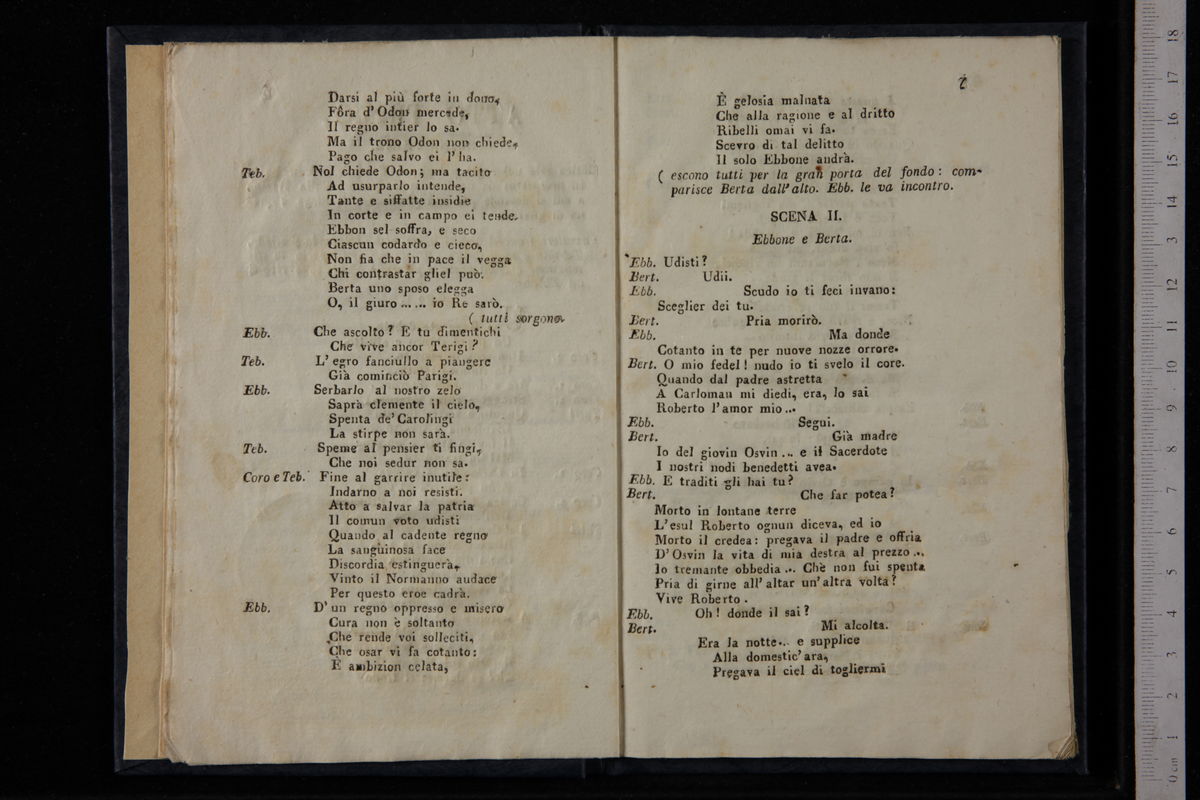 Darsi al più forte in dono,
Fôra d' Odon mercede,
Il regno intier lo sa.
Ma il trono Odon non chiede,
Pago che salvo ei l' ha.
Teb. Nol chiede Odon; ma tacito
Ad usurparlo intende,
Tante e siffatte insidie
In corte e in campo ei tende.
Ebbon sel soffra, e seco
Ciascun codardo e cieco,
Non fia che in pace il vegga
Chi contrastar gliel può.
Berta uno sposo elegga
O, il giuro ... ... io Re sarò.
( tutti sorgono.
Ebb. Che ascolto? E tu dimentichi
Che vive ancor Terigi?
Teb. L' egro fanciullo a piangere
Già cominciò Parigi.
Ebb. Serbarlo al nostro zelo
Saprà clemente il cielo,
Spenta de' Carolingi
La stirpe non sarà.
Teb. Speme al pensier ti fingi,
Che noi sedur non sa.
Coro e Teb. Fine al garrire inutile:
Indarno a noi resisti.
Atto a salvar la patria
Il comun voto udisti
Quando al cadente regno
La sanguinosa face
Discordia estinguerà,
Vinto il Normanno audace
Per questo eroe cadrà.
Ebb. D' un regno oppresso e misero
Cura non è soltanto
Che rende voi solleciti,
Che osar vi fa cotanto:
È ambizion celata,
7
È gelosia malnata
Che alla ragione e al dritto
Ribelli omai vi fa.
Scevro di tal delitto
Il solo Ebbone andrà.
( escono tutti per la gran porta del fondo: com-
parisce Berta dall' alto. Ebb. le va incontro.
SCENA II.
Ebbone e Berta.
Ebb. Udisti?
Bert. Udii.
Ebb. Scudo io ti feci invano:
Sceglier dei tu.
Bert. Pria morirò.
Ebb. Ma donde
Cotanto in te per nuove nozze orrore.
Bert. O mio fedel! nudo io ti svelo il core.
Quando dal padre astretta
A Carloman mi diedi, era, lo sai
Roberto l' amor mio ...
Ebb. Segui.
Bert. Già madre
Io del giovin Osvin ... e il Sacerdote
I nostri nodi benedetti avea.
Ebb. E traditi gli hai tu?
Bert. Che far potea?
Morto in lontane terre
L' esul Roberto ognun diceva, ed io
Morto il credea: pregava il padre e offria
D' Osvin la vita di mia destra al prezzo ...
Io tremante obbedia ... Chè non fui spenta
Pria di girne all' altar un' altra volta?
Vive Roberto.
Ebb. Oh! donde il sai?
Bert. Mi alcolta.
Era la notte... e supplice
Alla domestic' ara,
Pregava il ciel di togliermi
0 cm 1 2 3 4 5 6 7 8 9 10 11 12 13 14 15 16 17 18